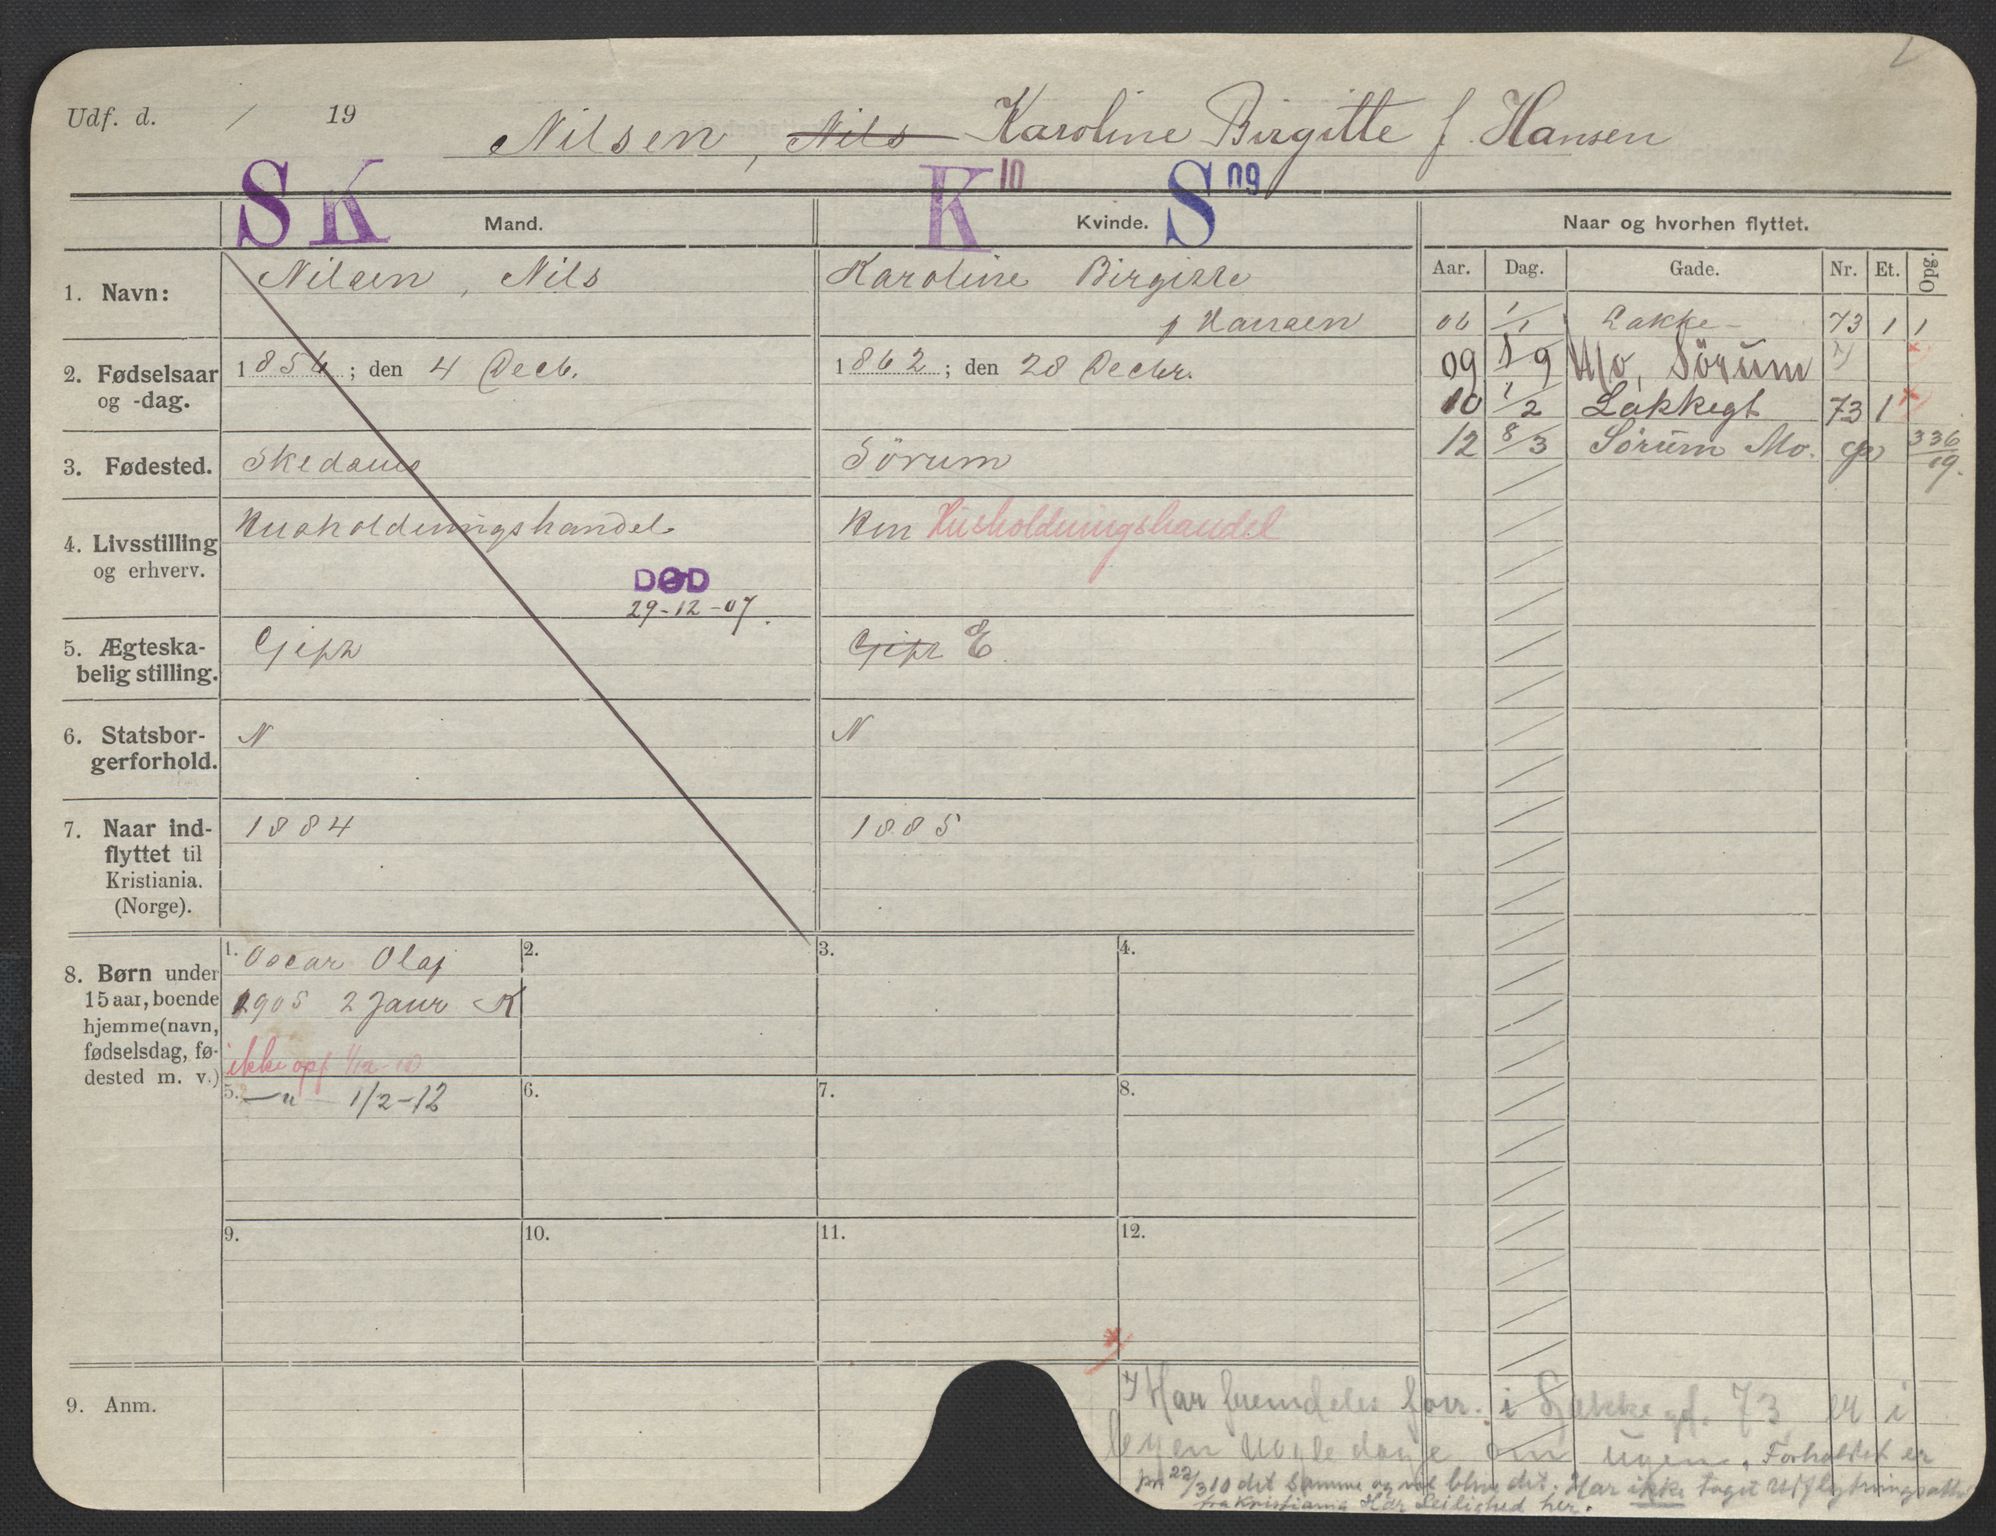 Udf. d. / 19
Nilsen, Nils Karoline Birgitte f. Hansen
S K Mand. K 10 Kvinde. S 09 Naar og hvorhen flyttet.
Aar. Dag. Gade. Nr. Et. Opg.
1. Navn: Nilsen, Nils Karoline Birgitte
f Hansen
06 1/1 Lakke- 73 1 1
09 1/9 Mo, Sörum x)
10 1/2 Lakkegt 73 1
12 8/3 Sörum Mo. 336/19.
2. Fødselsaar 1856; den 4 Decb. 1862; den 28 Decbr.
og -dag.
3. Fødested. Skedsmo Sörum
4. Livsstilling Husholdningshandel Hm Husholdningshandel
og erhverv.
DØD
29-12-07.
5. Ægteska- Gift Gift E
belig stilling.
6. Statsbor- N N
gerforhold.
7. Naar ind- 1884 1885
flyttet til
Kristiania.
(Norge).
8. Børn under
15 aar, boende
hjemme (navn,
fødselsdag, fø-
dested m. v.)
1. Oscar Olaf
1905 2 Janr K
ikke opf 1/12-10
2.
3.
4.
5. — " — 1/2-12
6.
7.
8.
9.
10.
11.
12.
9. Anm.
x) Har fremdeles forr. i Lakkegt. 73, er i
byen nogle dage om ugen. Forholdet er
pr 22/3 10 det samme og vil blive det. Har ikke taget Udflytningsatt.
fra Kristiania Har Leilighed her.